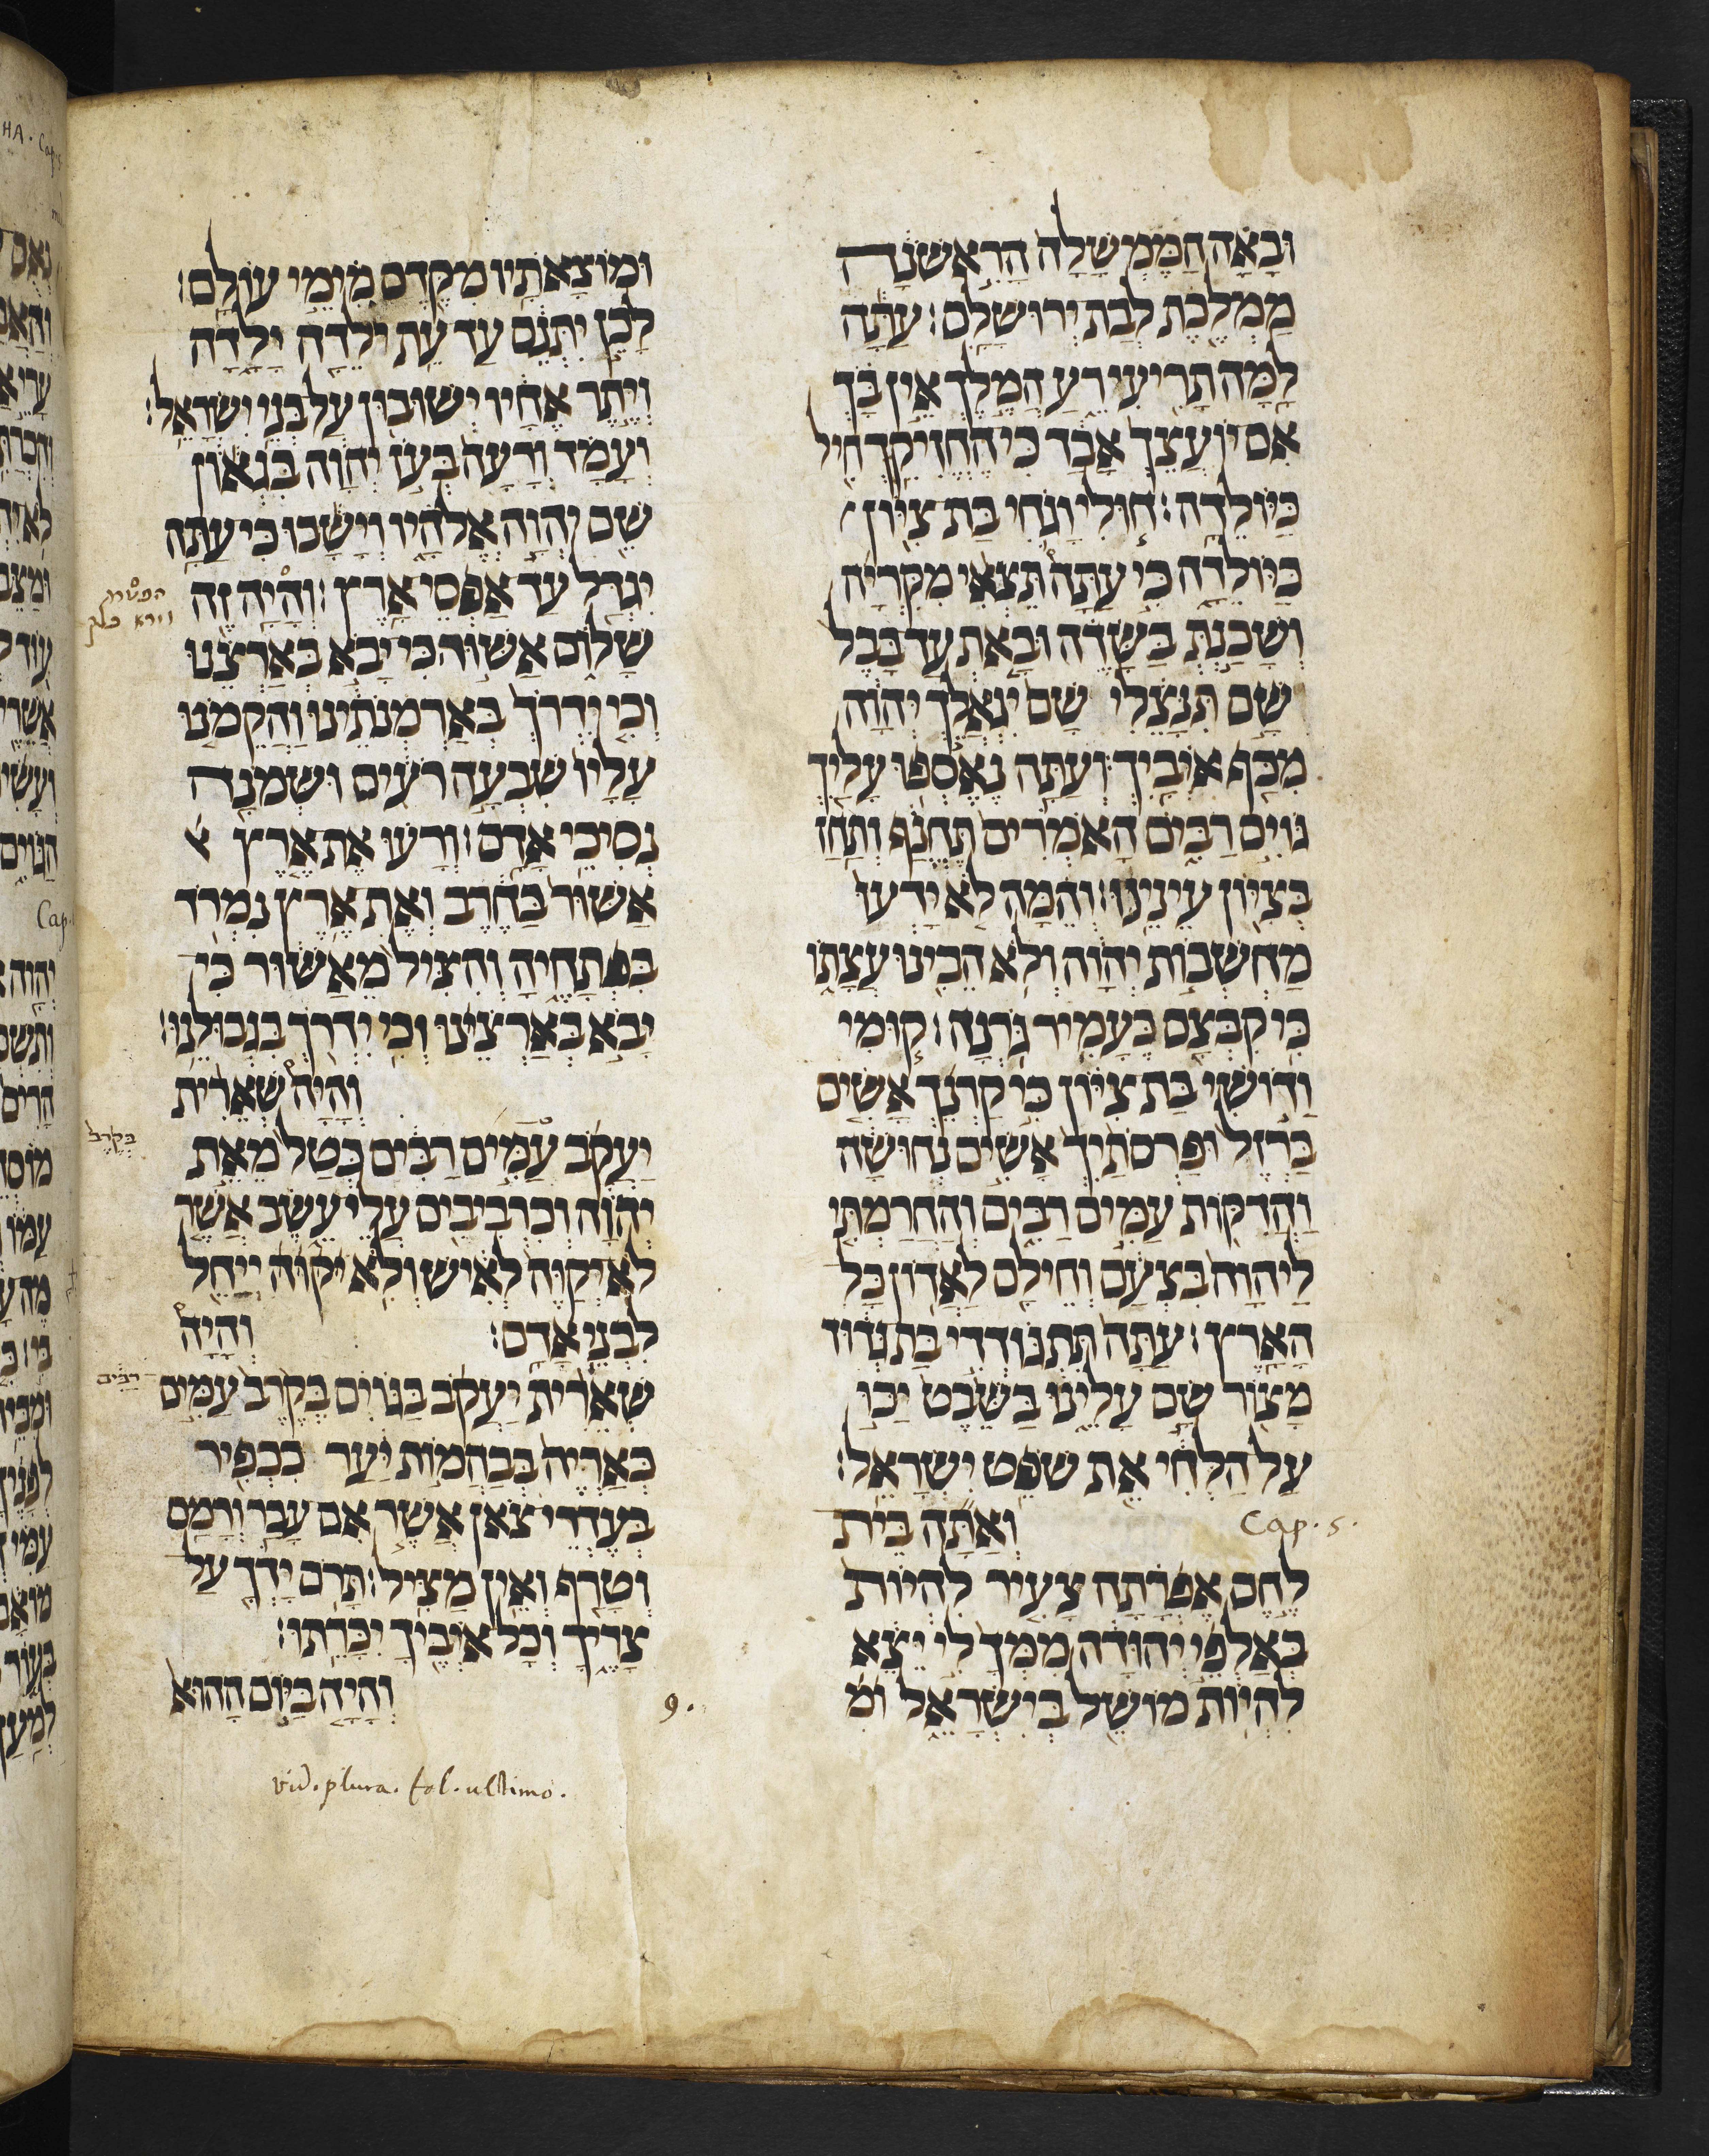 וּבָאָה הַמֶּמְשָׁלָה הָרִאשֹׁנָה
מַמְלֶכֶת לְבַת יְרוּשָׁלָם׃ עַתָּה
לָמָּה תָרִיעִי רֵעַ הֲמֶלֶךְ אֵין בָּךְ
אִם יוֹעֲצֵךְ אָבָד כִּי הֶחֱזִיקֵךְ חִיל
כַּיּוֹלֵדָה׃ חוּלִי וָגֹחִי בַּת צִיּוֹן
כַּיּוֹלֵדָה כִּי עַתָּה תֵצְאִי מִקִּרְיָה
וְשָׁכַנְתְּ בַּשָּׂדֶה וּבָאת עַד בָּבֶל
שָׁם תִּנָּצֵלִי שָׁם יִגְאָלֵךְ יְהוָה
מִכַּף אֹיְבָיִךְ׃ וְעַתָּה נֶאֶסְפוּ עָלַיִךְ
גּוֹיִם רַבִּים הָאֹמְרִים תֶּחֱנָף וְתַחַז
בְּצִיּוֹן עֵינֵינוּ׃ וְהֵמָּה לֹא יָדְעוּ
מַחְשְׁבוֹת יְהוָה וְלֹא הֵבִינוּ עֲצָתוֹ
כִּי קִבְּצָם כֶּעָמִיר גֹּרְנָה׃ קוּמִי
וָדוֹשִׁי בַת צִיּוֹן כִּי קַרְנֵךְ אָשִׂים
בַּרְזֶל וּפַרְסֹתַיִךְ אָשִׂים נְחוּשָׁה
וַהֲדִקּוֹת עַמִּים רַבִּים וְהַחֲרַמְתִּי
לַיהוָה בִּצְעָם וְחֵילָם לַאֲדוֹן כָּל
הָאָרֶץ׃ עַתָּה תִּתְגּוֹדְדִי בַת גְּדוּד
מָצוֹר שָׂם עָלֵינוּ בַּשֵּׁבֶט יַכּוּ
עַל הַלְּחִי אֵת שֹׁפֵט יִשְׂרָאֵל׃
Cap. 5. וְאַתָּה בֵּית
לֶחֶם אֶפְרָתָה צָעִיר לִהְיוֹת
בְּאַלְפֵי יְהוּדָה מִמְּךָ לִי יֵצֵא
לִהְיוֹת מוֹשֵׁל בְּיִשְׂרָאֵל וּמ
וּמוֹצָאֹתָיו מִקֶּדֶם מִימֵי עוֹלָם׃
לָכֵן יִתְּנֵם עַד עֵת יֹלֵדָה יָלָדָה
וְיֶתֶר אֶחָיו יְשׁוּבוּן עַל בְּנֵי יִשְׂרָאֵל׃
וְעָמַד וְרָעָה בְּעֹז יְהוָה בִּגְאוֹן
שֵׁם יְהוָה אֱלֹהָיו וְיָשָׁבוּ כִּי עַתָּה
יִגְדַּל עַד אַפְסֵי אָרֶץ׃ וְהָיָה זֶה
הפטרת
וירא בלק
שָׁלוֹם אַשּׁוּר כִּי יָבֹא בְאַרְצֵנוּ
וְכִי יִדְרֹךְ בְּאַרְמְנֹתֵינוּ וַהֲקֵמֹנוּ
עָלָיו שִׁבְעָה רֹעִים וּשְׁמֹנָה
נְסִיכֵי אָדָם׃ וְרָעוּ אֶת אֶרֶץ
אַשּׁוּר בַּחֶרֶב וְאֶת אֶרֶץ נִמְרֹד
בִּפְתָחֶיהָ וְהִצִּיל מֵאַשּׁוּר כִּי
יָבֹא בְאַרְצֵינוּ וְכִי יִדְרֹךְ בִּגְבוּלֵנוּ׃
וְהָיָה שְׁאֵרִית
יַעֲקֹב עַמִּים רַבִּים כְּטַל מֵאֵת
בְּקֶרֶב
יְהוָה וְכִרְבִיבִים עֲלֵי עֵשֶׂב אֲשֶׁר
לֹא יְקַוֶּה לְאִישׁ וְלֹא יְקַוֶּה יְיַחֵל
לִבְנֵי אָדָם׃ וְהָיָה
שְׁאֵרִית יַעֲקֹב בַּגּוֹיִם בְּקֶרֶב עַמִּים
רַבִּים
כְּאַרְיֵה בְּבַהֲמוֹת יַעַר כִּכְפִיר
בְּעֶדְרֵי צֹאן אֲשֶׁר אִם עָבַר וְרָמַס
וְטָרַף וְאֵין מַצִּיל׃ תָּרֹם יָדְךָ עַל
צָרֶיךָ וְכָל אֹיְבֶיךָ יִכָּרֵתוּ׃
9. וְהָיָה בַיּוֹם הַהוּא
vid. plura. fol. ultimo.